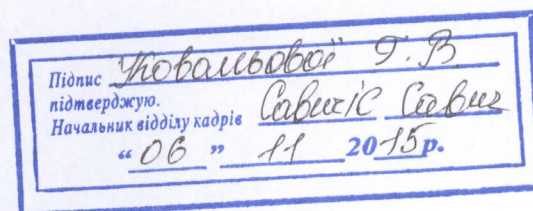 Підпис Ковальової Г.В
підтверджую.
Начальник відділу кадрів Савих І С
“06” 11 2015 р.